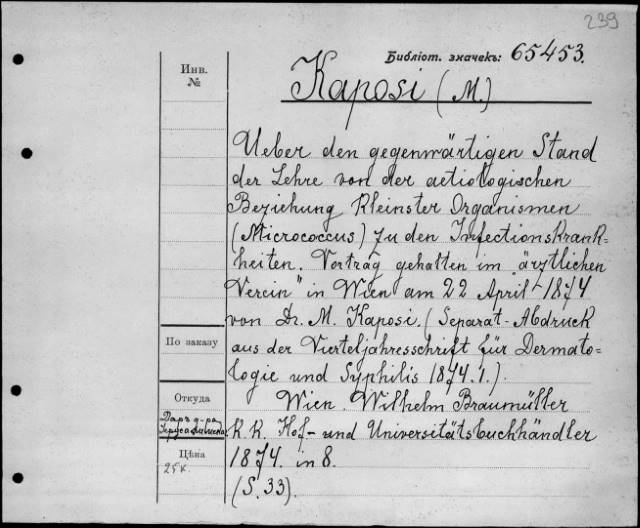 239
Библіот. значекъ: 65453.
Инв.
№
Kaposi (M.)
Ueber den gegenwärtigen Stand
der Lehre von der aetiologischen
Beziehung kleinster Organismen
(Micrococcus) zu den Infectionskrank-
heiten. Vortrag gehalten im „ärztlichen
Verein" in Wien am 22 April 1874
von Dr. M. Kaposi. (Separat-Abdruck
По заказу
aus der Vierteljahresschrift für Dermato-
logie und Syphilis 1874.1.).
Откуда
Wien. Wilhelm Braumüller
Даръ д-ра
K. K. Hof- und Universitätsbuchhändler
Цѣна
25к.
1874. in 8.
(S. 33).